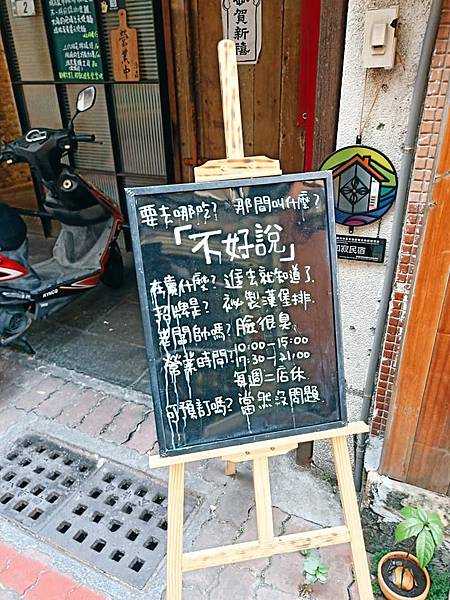 恭賀新禧
營業中
2
要去哪吃? 那間叫什麼?
「不好說」
在賣什麼? 進去就知道了.
招牌是? 祕製漢堡排.
老闆帥嗎? 臉很臭.
營業時間? 10:00-15:00
17:30-21:00
每週二店休.
可預訂嗎? 當然沒問題.
KYMCO
和寂民宿